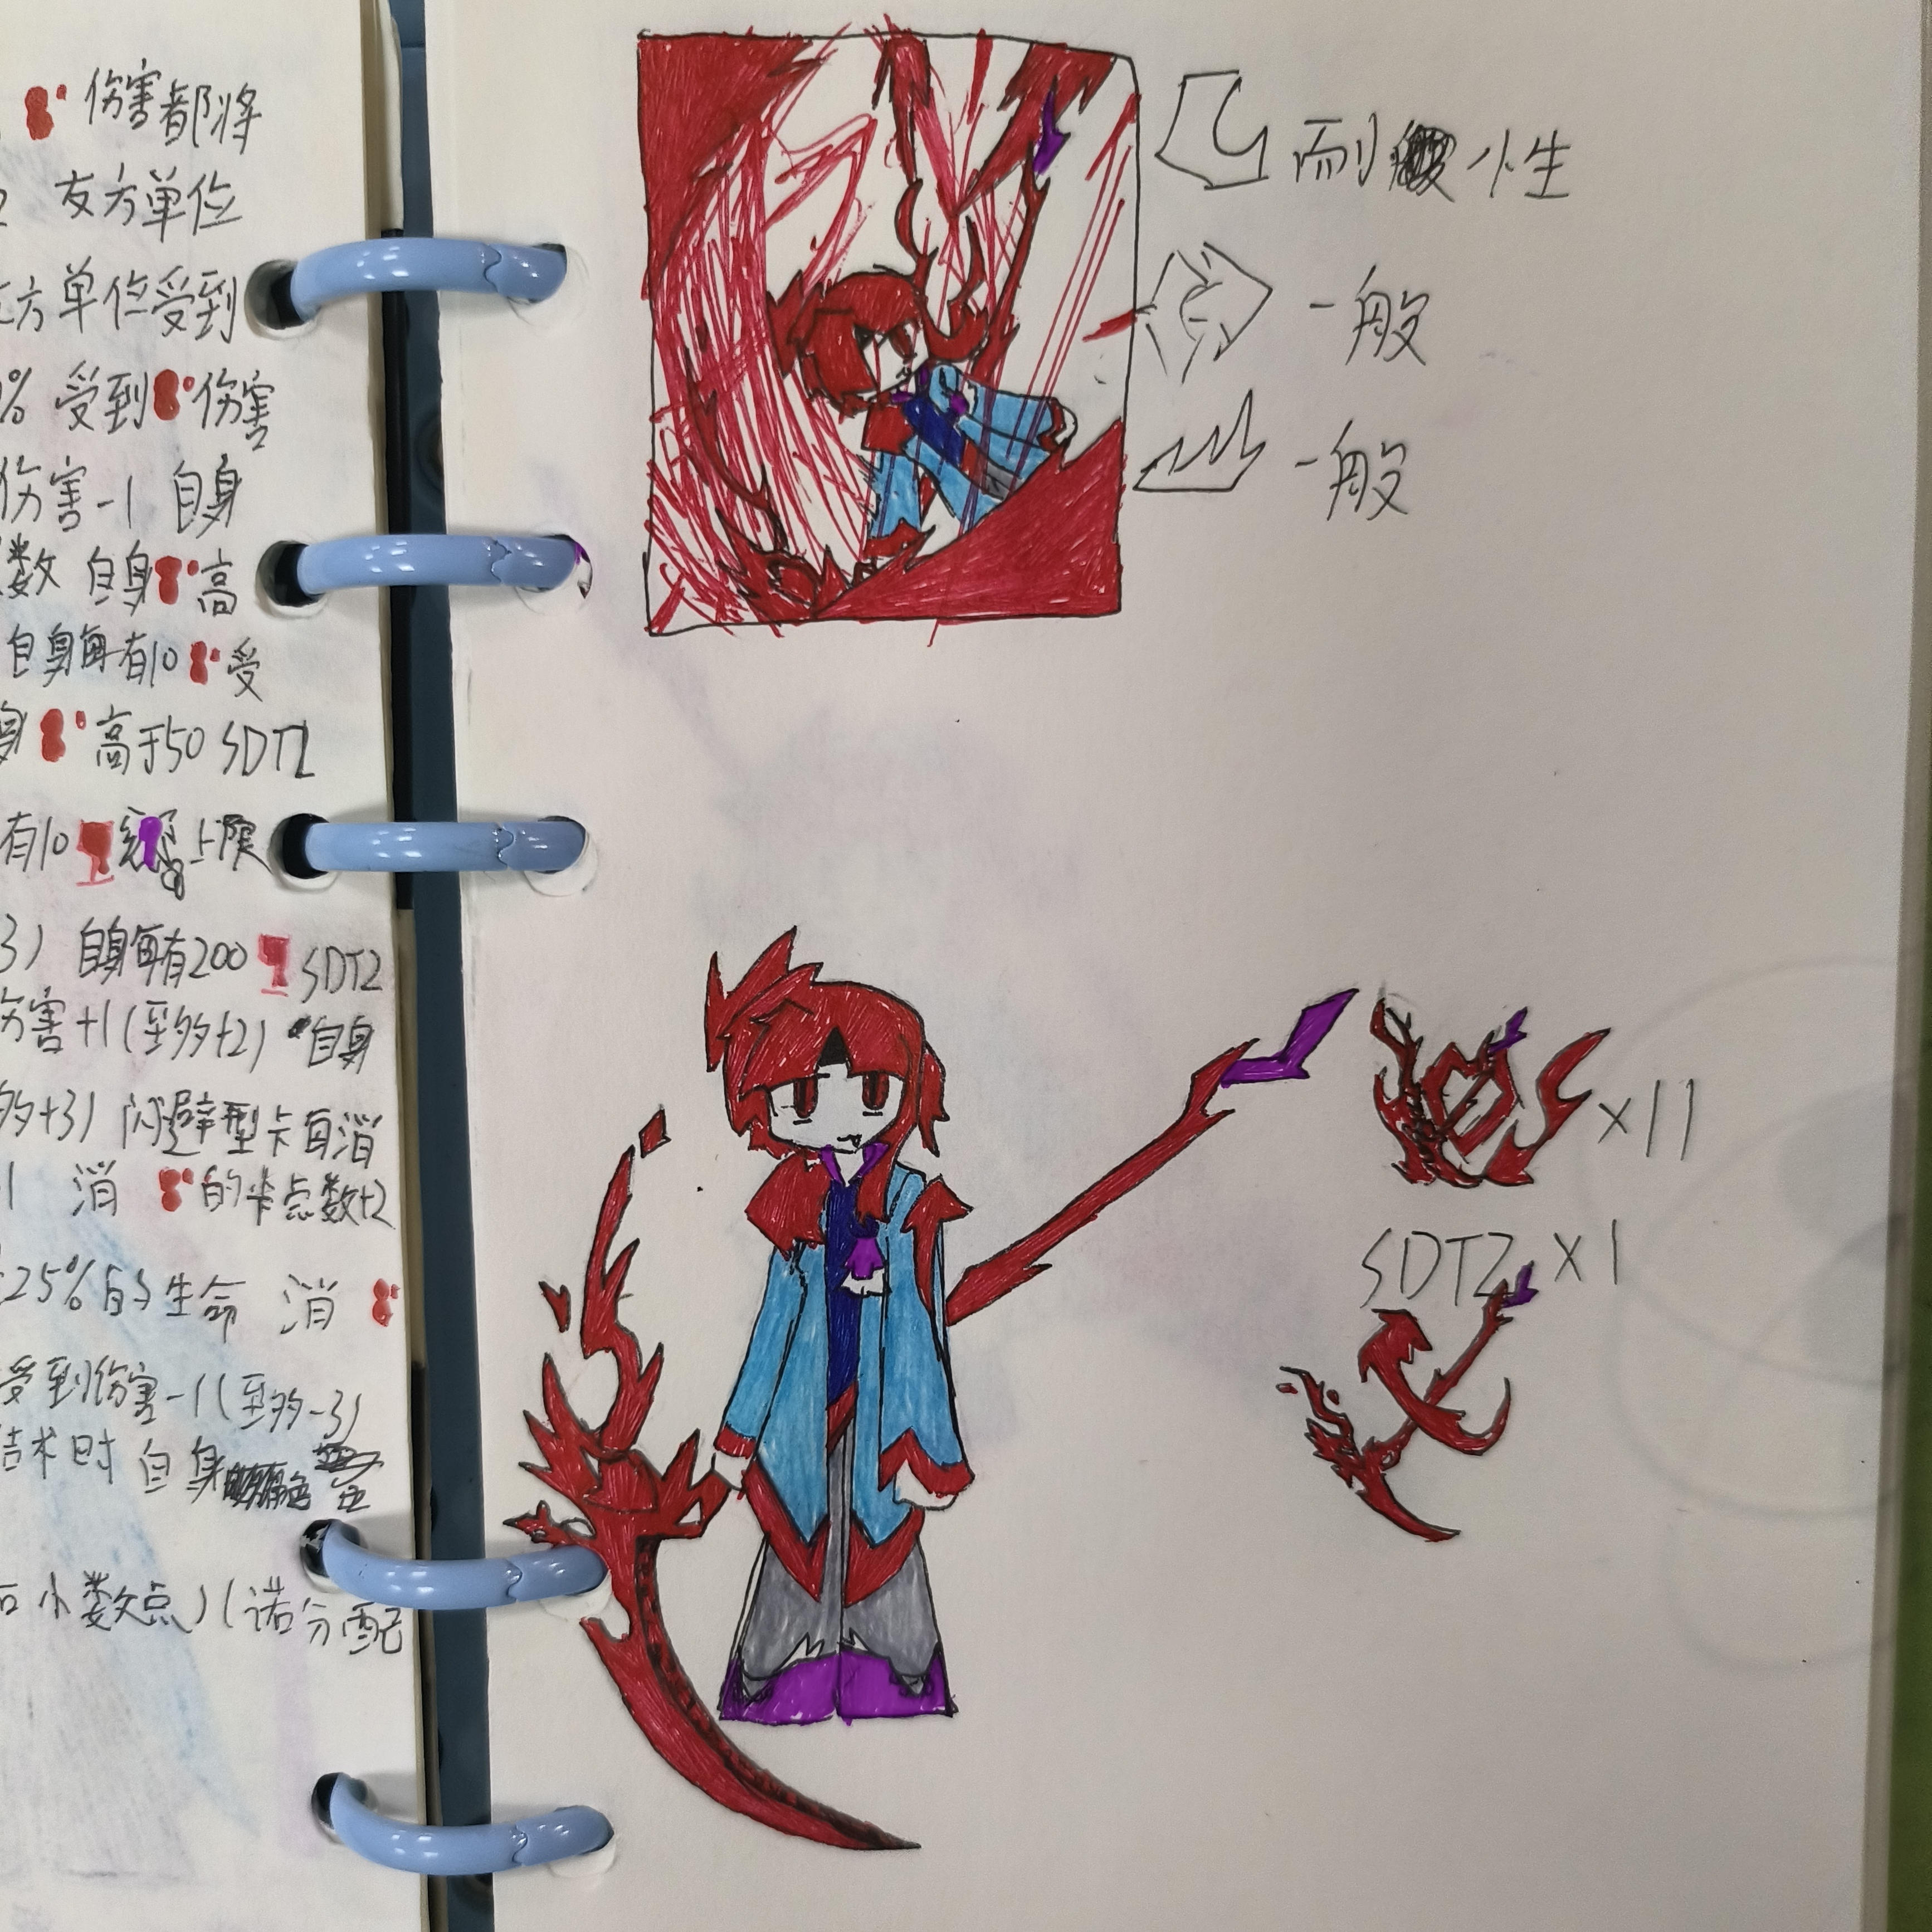 伤害都将
友方单位
方单位受到
% 受到 伤害
伤害-1 自身
数 自身 高
自身每有10 受
身 高于50 SDTZ
有10 上限
3) 自身每有200 SDT2
伤害+1(至多+2) 自身
多+3) 闪避型卡每消
消 的卡点数+2
25%的生命 消
受到伤害-1(至多-3)
结术时 自身
小数点)(诺分配
耐 性
一般
一般
×11
SDTZ ×1